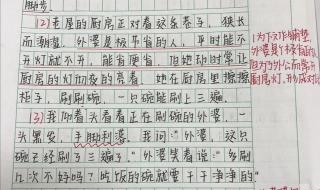 脚步
(2)老屋的厨房正对着这条巷子,狭长
而潮湿。外婆是极节省的人,平时能不
开灯就不开,能省便省。但她却时常让
厨房的灯彻夜的亮着。她在厨房里擦擦
柜子,刷刷碗,一只碗能刷上三遍。
(3)我仰着头看着正在刷碗的外婆,一
头黑发,手脚利落。我问:"外婆,这只
碗已经刷了三遍了。"外婆笑着说:"多刷
几次不好吗?吃饭的碗就要干干净净的"
为下文作铺垫,
外婆是个极节省的人
但为了外公而常开
厨房灯,形成对比